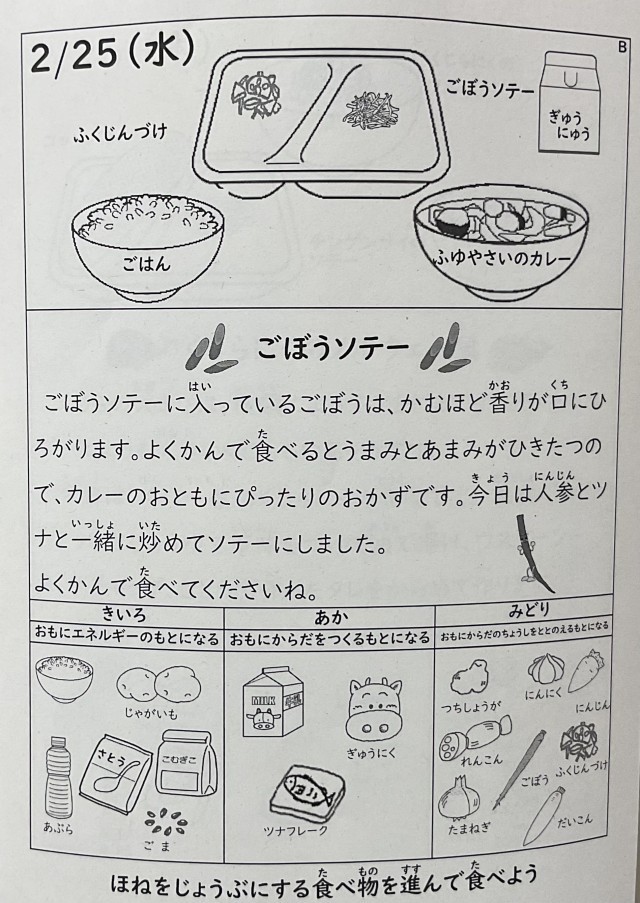 2/25(水)
B
ごぼうソテー
ぎゅう
にゅう
ふくじんづけ
ごはん
ふゆやさいのカレー
ごぼうソテー
ごぼうソテーに入っているごぼうは、かむほど香りが口にひ
ろがります。よくかんで食べるとうまみとあまみがひきたつの
で、カレーのおともにぴったりのおかずです。今日は人参とツ
ナと一緒に炒めてソテーにしました。
よくかんで食べてくださいね。
きいろ
おもにエネルギーのもとになる
じゃがいも
さとう
こむぎこ
あぶら
ごま
あか
おもにからだをつくるもとになる
MILK
ぎゅうにく
ツナフレーク
みどり
おもにからだのちょうしをととのえるもとになる
つちしょうが
にんにく
にんじん
れんこん
ごぼう
ふくじんづけ
たまねぎ
だいこん
ほねをじょうぶにする食べ物を進んで食べよう